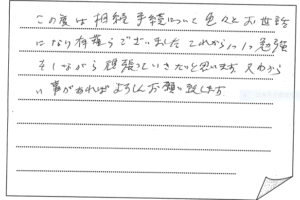 この度は相続手続について色々とお世話
になり有難うございました これからいい勉強
をしながら頑張っていきたいと思います 又わから
い事があればよろしくお願い致します